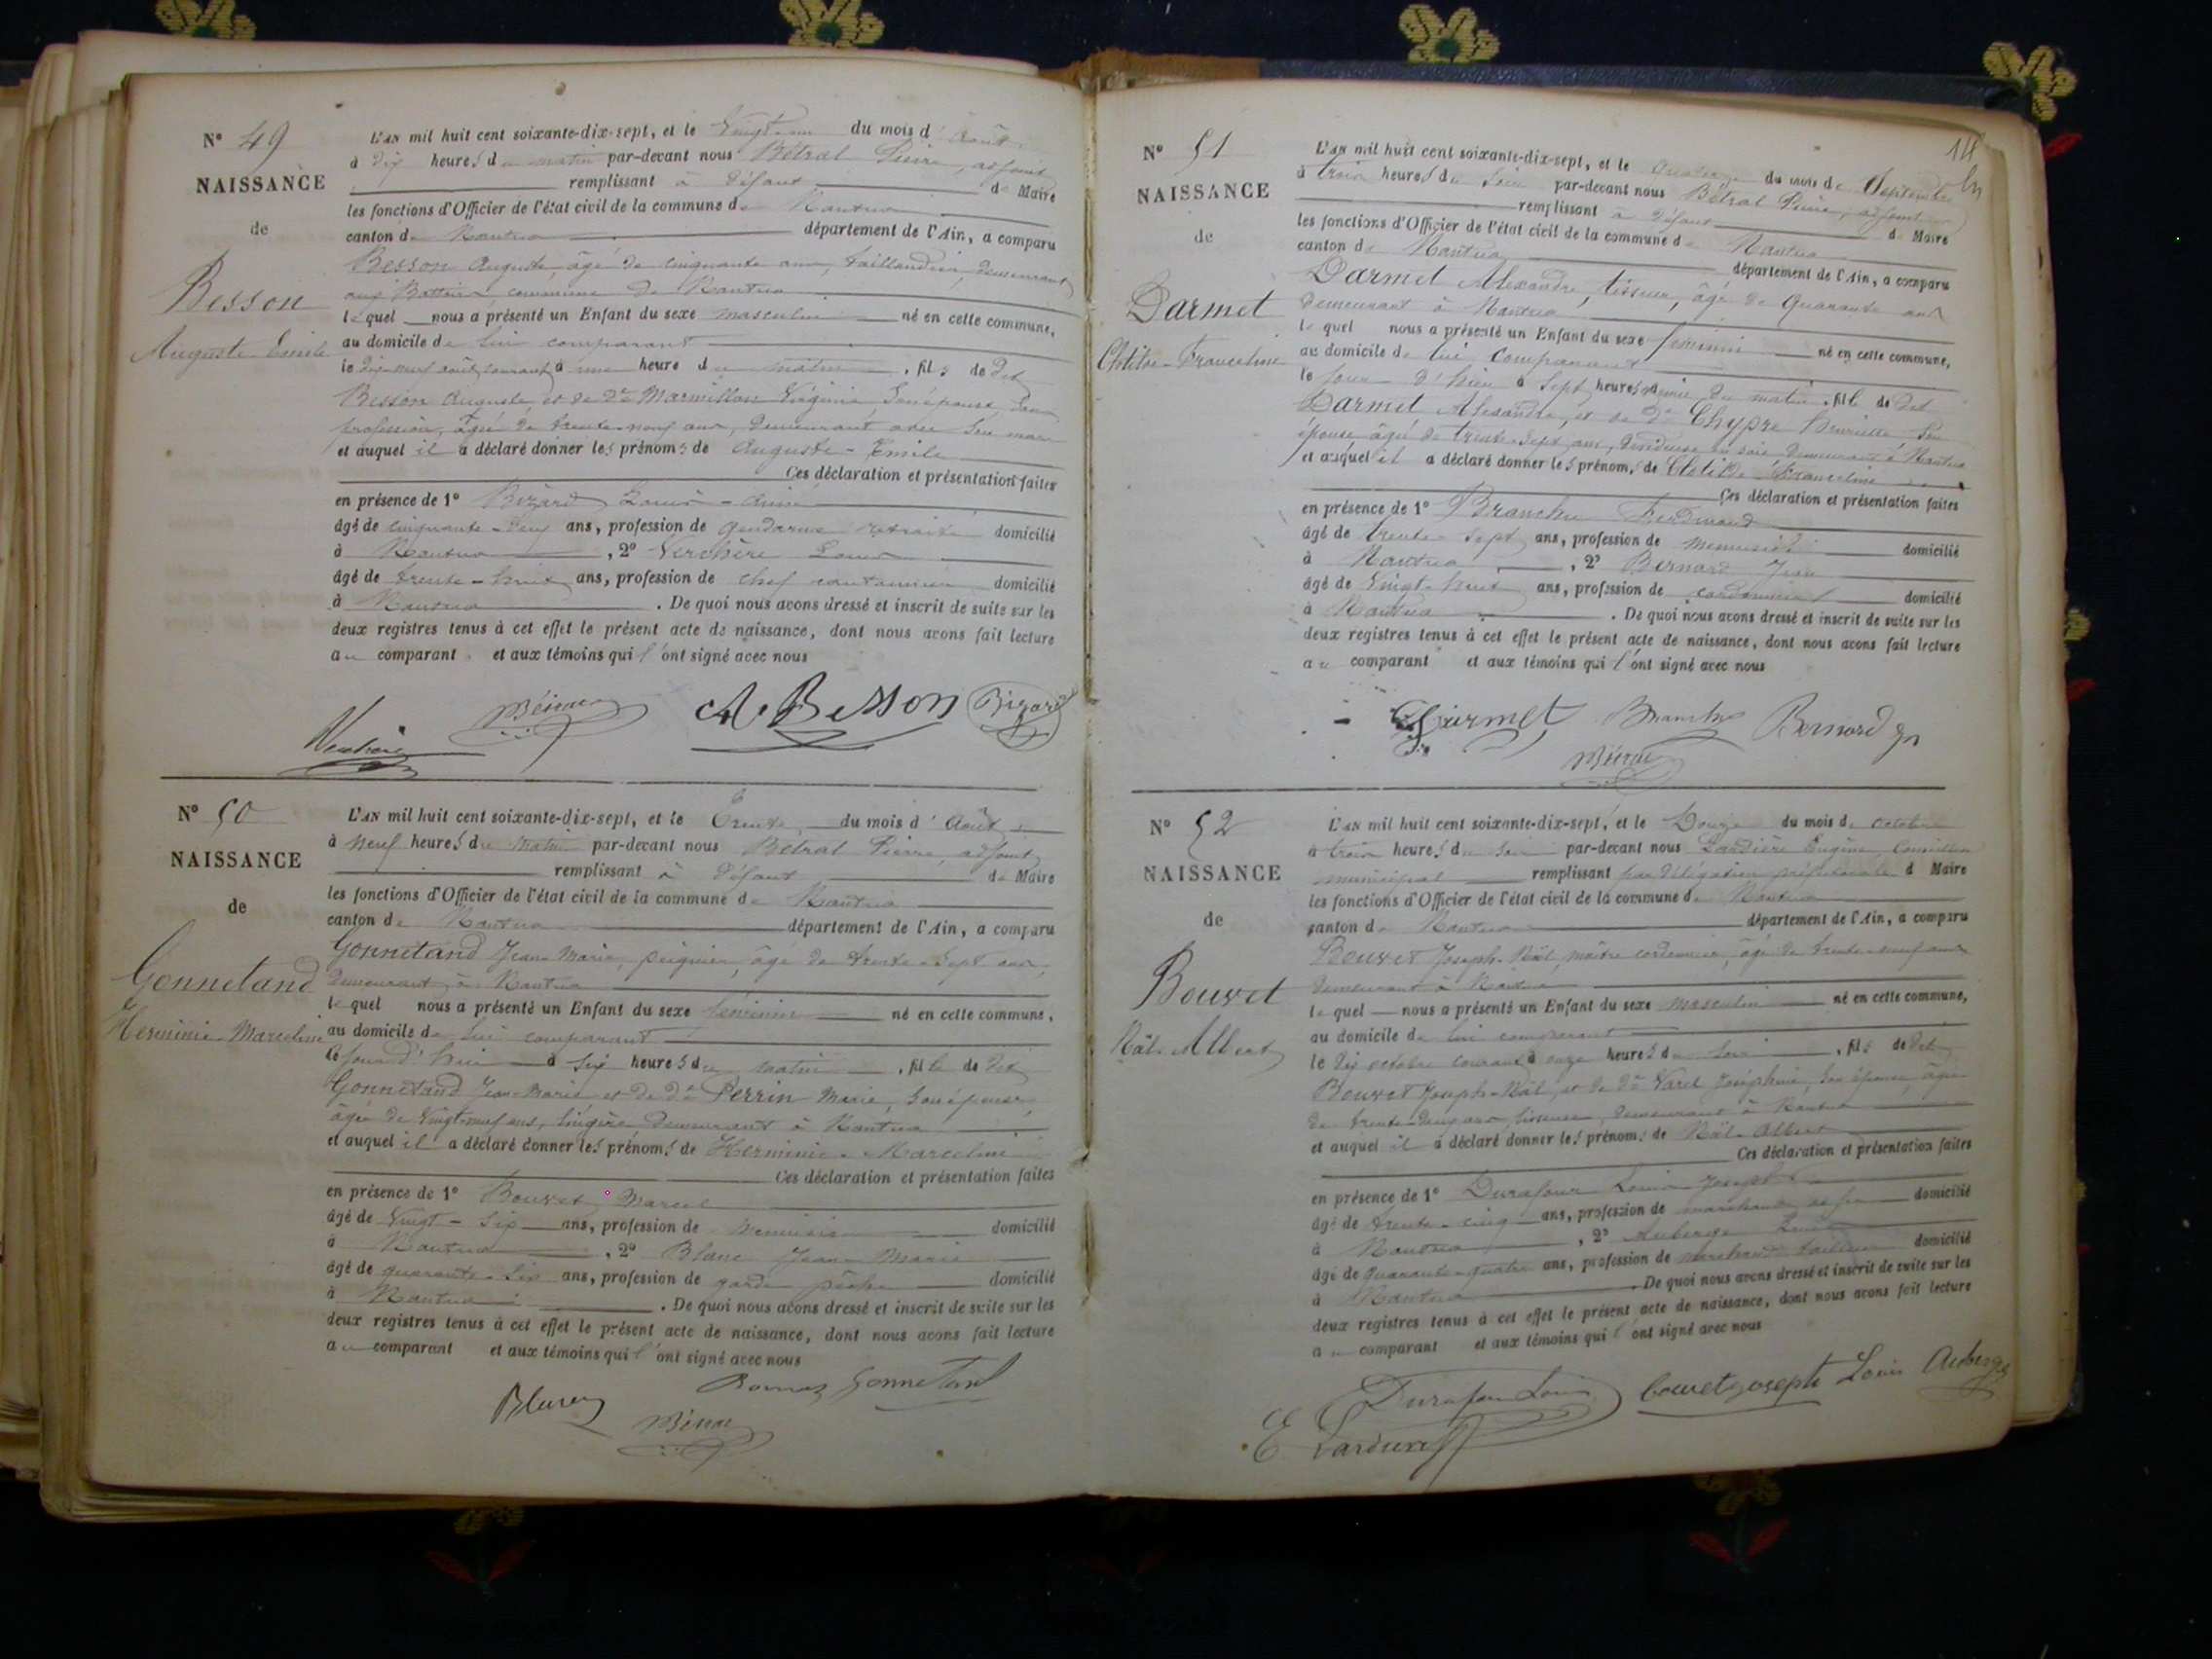 N° 49
NAISSANCE
de
Besson
Auguste Emile
L'AN mil huit cent soixante-dix-sept, et le Vingt-un du mois d'Août
à dix heures du matin par-devant nous Bétral Pierre, adjoint
remplissant à défaut de Maire
les fonctions d'Officier de l'état civil de la commune de Nantua
canton de Nantua département de l'Ain, a comparu
Besson Auguste, âgé de cinquante ans, taillandier, demeurant
aux Battoirs, commune de Nantua
lequel nous a présenté un Enfant du sexe masculin né en cette commune,
au domicile de lui comparant
le dix-neuf août courant à une heure du matin, fils de dit
Besson Auguste, et de De Marmillon Virginie, son épouse, sans
profession, âgée de trente-neuf ans, demeurant avec son mari
et auquel il a déclaré donner les prénoms de Auguste-Emile
Ces déclaration et présentation faites
en présence de 1° Bizard Louis-Aimé
âgé de cinquante-deux ans, profession de gendarme retraité domicilié
à Nantua, 2° Verchère Louis
âgé de trente-huit ans, profession de chef cantonnier domicilié
à Nantua. De quoi nous avons dressé et inscrit de suite sur les
deux registres tenus à cet effet le présent acte de naissance, dont nous avons fait lecture
au comparant et aux témoins qui l'ont signé avec nous
Verchère Bétral A. Besson Bizard
N° 50
NAISSANCE
de
Gonnetand
Herminie-Marceline
L'AN mil huit cent soixante-dix-sept, et le Trente du mois d'Août
à neuf heures du matin par-devant nous Bétral Pierre, adjoint
remplissant à défaut de Maire
les fonctions d'Officier de l'état civil de la commune de Nantua
canton de Nantua département de l'Ain, a comparu
Gonnetand Jean-Marie, peignier, âgé de trente-sept ans,
demeurant à Nantua
lequel nous a présenté un Enfant du sexe féminin né en cette commune,
au domicile de lui comparant
le jour d'hui à six heures du matin, fille de dit
Gonnetand Jean-Marie, et de De Perrin Marie, son épouse,
âgée de vingt-neuf ans, lingère demeurant à Nantua
et auquel il a déclaré donner les prénoms de Herminie-Marceline
Ces déclaration et présentation faites
en présence de 1° Bouvet Marcel
âgé de Vingt-six ans, profession de menuisier domicilié
à Nantua, 2° Blanc Jean-Marie
âgé de quarante-six ans, profession de garde pêche domicilié
à Nantua. De quoi nous avons dressé et inscrit de suite sur les
deux registres tenus à cet effet le présent acte de naissance, dont nous avons fait lecture
au comparant et aux témoins qui l'ont signé avec nous
Gonnetand
Bétral
N° 51
NAISSANCE
de
Darmet
Clotilde-Franceline
L'AN mil huit cent soixante-dix-sept, et le Quatorze du mois de Septembre
à trois heures du soir par-devant nous Bétral Pierre, adjoint
remplissant à défaut de Maire
les fonctions d'Officier de l'état civil de la commune de Nantua
canton de Nantua département de l'Ain, a comparu
Darmet Alexandre, tisseur, âgé de Quarante ans
demeurant à Nantua
lequel nous a présenté un Enfant du sexe féminin né en cette commune,
au domicile de lui comparant
le jour d'hier à sept heures demie du matin, fille de dit
Darmet Alexandre, et de De Chypre Henriette son
épouse âgée de trente-sept ans, dévideuse en soie, demeurant à Nantua
et auquel il a déclaré donner les prénoms de Clotilde Franceline
Ces déclaration et présentation faites
en présence de 1° Branche Ferdinand
âgé de trente-sept ans, profession de menuisier domicilié
à Nantua, 2° Bernard Jean
âgé de Vingt-huit ans, profession de cordonnier domicilié
à Nantua. De quoi nous avons dressé et inscrit de suite sur les
deux registres tenus à cet effet le présent acte de naissance, dont nous avons fait lecture
au comparant et aux témoins qui l'ont signé avec nous
Darmet Branche Bernard
Bétral
N° 52
NAISSANCE
de
Bouvet
Noël-Albert
L'AN mil huit cent soixante-dix-sept, et le Douze du mois de octobre
à trois heures du soir par-devant nous Eugène, Conseiller
municipal remplissant par délégation d Maire
les fonctions d'Officier de l'état civil de la commune de Nantua
canton de Nantua département de l'Ain, a comparu
Bouvet Joseph-Noël, maître cordonnier, âgé de trente-neuf ans
demeurant à Nantua
lequel nous a présenté un Enfant du sexe masculin né en cette commune,
au domicile de lui comparant
le dix octobre courant à onze heures du soir, fils de dit
Bouvet Joseph-Noël, et de De Varel Joséphine, son épouse, âgée
de trente-deux ans, tisseuse, demeurant à Nantua
et auquel il a déclaré donner les prénoms de Noël-Albert
Ces déclaration et présentation faites
en présence de 1° Durafour Louis Joseph
âgé de trente-cinq ans, profession de marchand domicilié
à Nantua, 2° Auberge Louis
âgé de quarante-quatre ans, profession de marchand tailleur domicilié
à Nantua. De quoi nous avons dressé et inscrit de suite sur les
deux registres tenus à cet effet le présent acte de naissance, dont nous avons fait lecture
au comparant et aux témoins qui l'ont signé avec nous
Durafour Louis bouvet joseph Louis Auberge